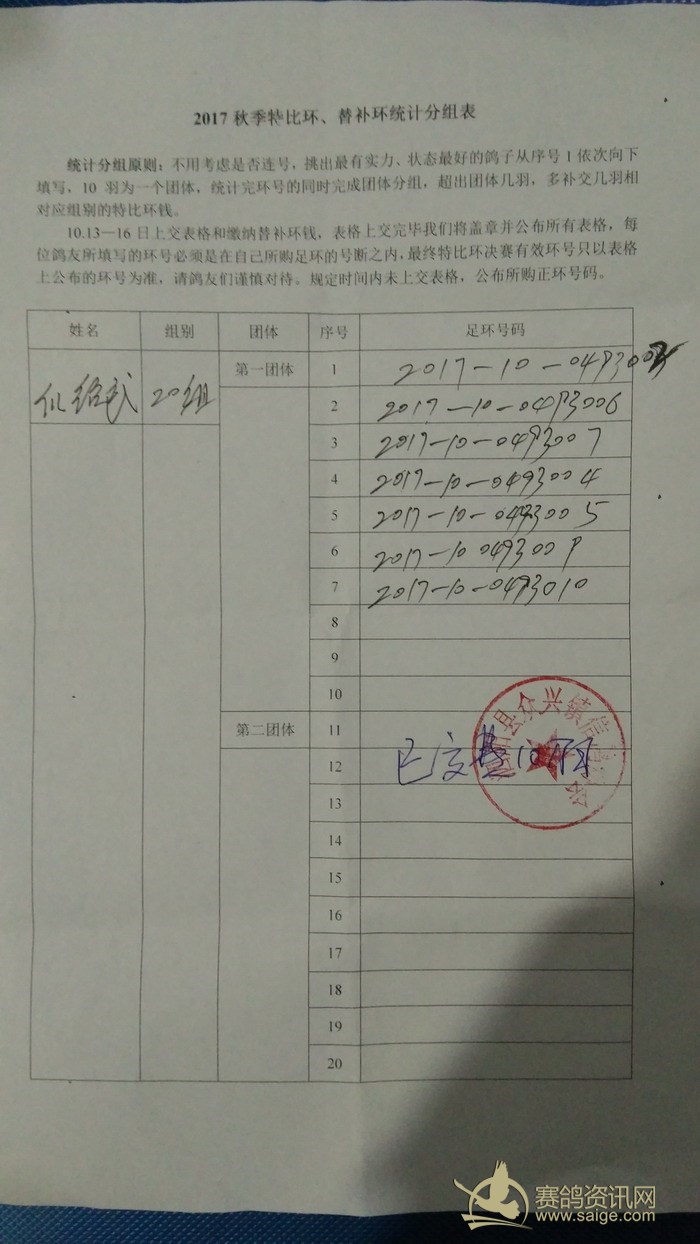 2017 秋季特比环、替补环统计分组表
统计分组原则：不用考虑是否连号，挑出最有实力、状态最好的鸽子从序号 1 依次向下
填写，10 羽为一个团体、统计完环号的同时完成团体分组，超出团体几羽，多补交几羽相
对应组别的特比环钱。
10.13—16 日上交表格和缴纳替补环钱，表格上交完毕我们将盖章并公布所有表格，每
位鸽友所填写的环号必须是在自己所购足环的号断之内，最终特比环决赛有效环号只以表格
上公布的环号为准，请鸽友们谨慎对待。规定时间内未上交表格，公布所购正环号码。
姓名 组别 团体 序号 足环号码
20组 第一团体 1 2017-10-
2 2017-10-0493006
3 2017-10-0493007
4 2017-10-0493004
5 2017-10-0493005
6 2017-10 049300
7 2017-10-0493010
8
9
10
第二团体 11
12 已交
13
14
15
16
17
18
19
20
县众兴镇信鸽
赛鸽资讯网
www.saige.com